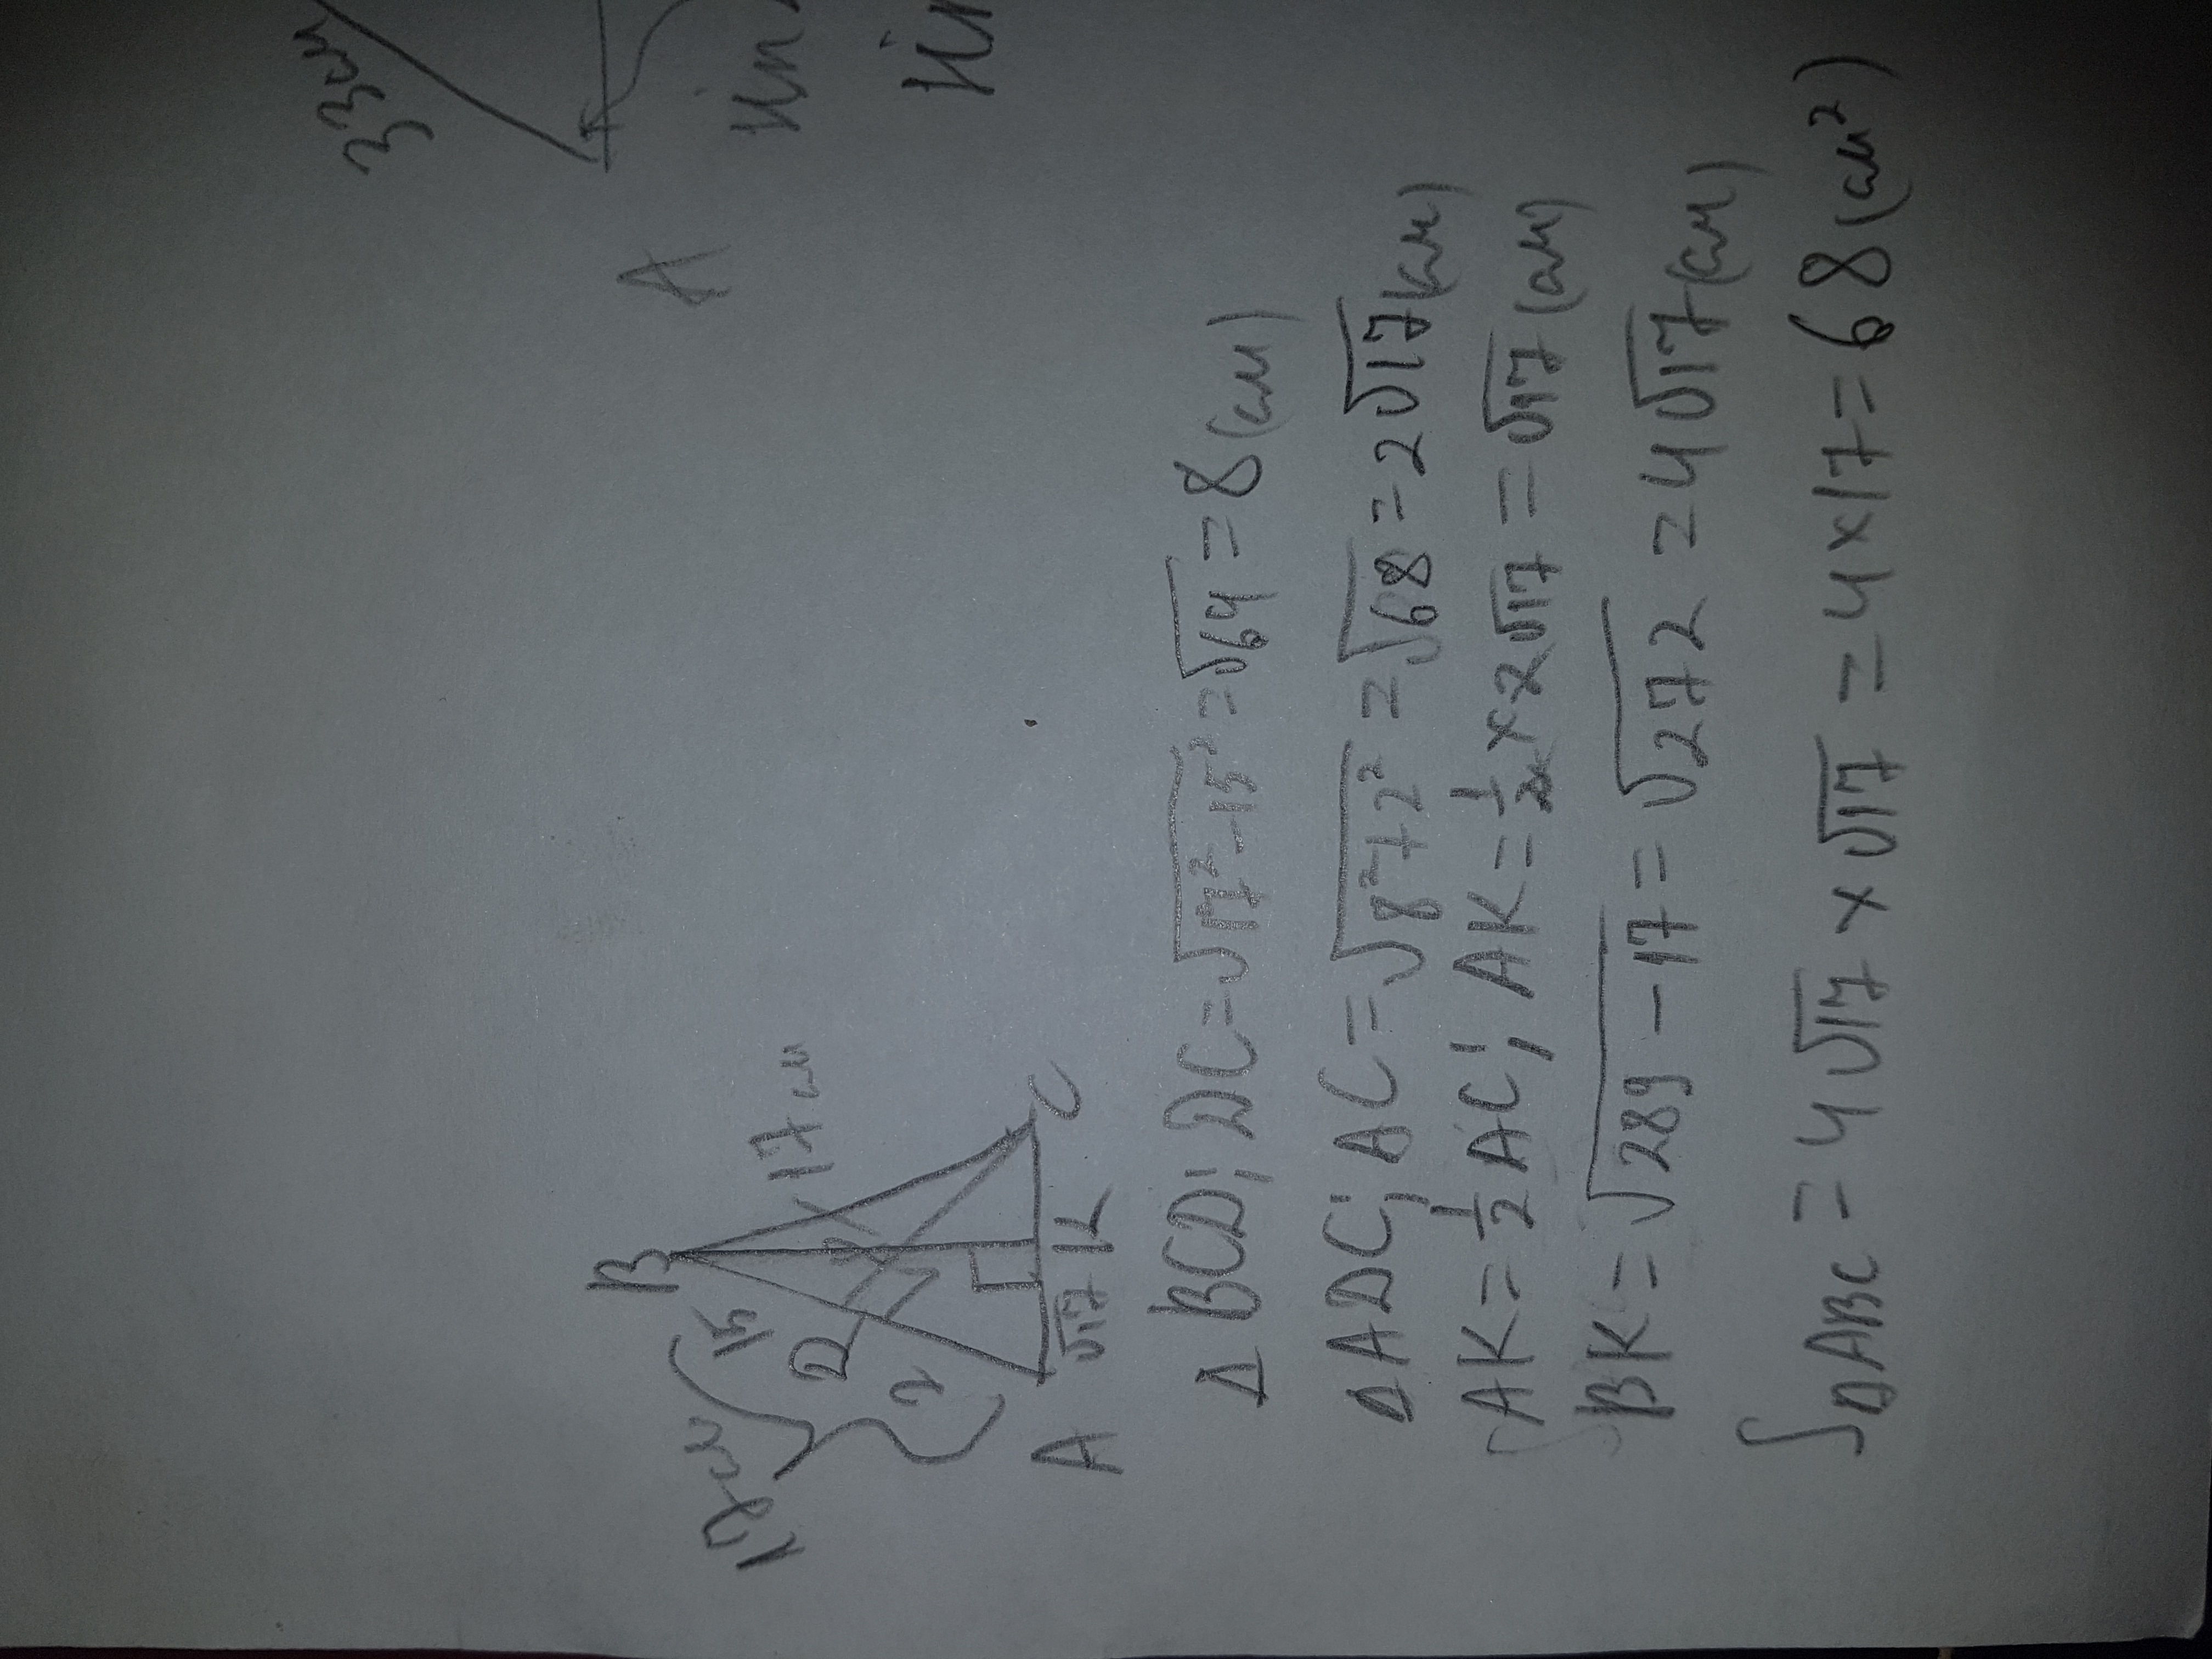 33см
A
sin
sin
B
17см
15
17см
D
2
A
√17
K
C
Δ BCD; DC=√17²-15²=√64=8(см)
Δ ADC; AC=√8²+2²=√68=2√17(см)
AK=1/2 AC; AK=1/2×2√17=√17(см)
BK=√289-17=√272=4√17(см)
SΔABC=4√17×√17=4×17=68(см²)